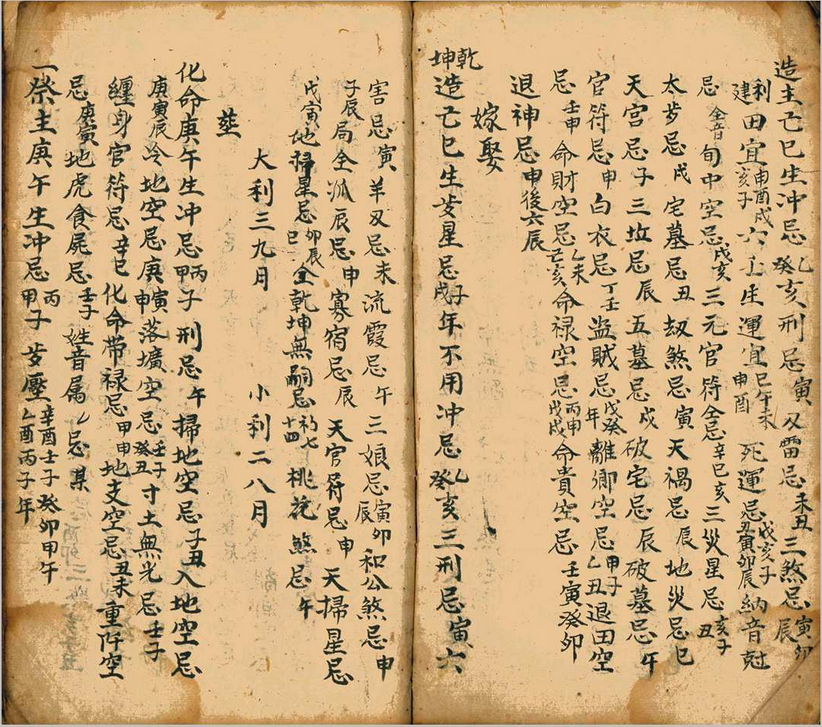 造主亡巳生冲忌乙癸亥刑忌寅刃雷忌未丑三煞忌寅卯辰
利建田宜申酉戌亥子六壬生運宜巳午未申酉死運忌戊亥子丑寅卯辰納音尅
忌全音旬中空忌戌亥三元官符全忌辛巳亥三災星忌亥子丑
太岁忌戌宅墓忌丑刼煞忌寅天禍忌辰地災忌巳
天宫忌子三坟忌辰五墓忌戌破宅忌辰破墓忌午
官符忌申白衣忌丁壬盗賊忌戊癸年離鄉空忌甲子乙丑退田空
忌壬申命財空忌乙未亡亥命禄空忌丙申戊戌命貴空忌壬寅癸卯
退神忌申後六辰
嫁娶
乾坤造亡巳生岁星忌子戌年不用冲忌乙癸亥三刑忌寅六
害忌寅羊刃忌未流霞忌午三娘忌寅卯辰和公煞忌申
子辰局全孤辰忌申寡宿忌辰天官符忌申天掃星忌
戊寅地掃星忌卯辰巳全乾坤無嗣忌初七十四桃花煞忌午
大利三九月小利二八月
𦵏
化命庚午生冲忌丙甲子刑忌午掃地空忌子丑入地空忌
庚寅辰冷地空忌庚寅申落壙空忌壬子癸丑寸土無光忌壬子
纏身官符忌辛巳化命带禄忌甲申地支空忌丑未重阡空
忌庚寅地虎食屍忌壬子姓音属忌某
一祭主庚午生冲忌丙甲子岁壓辛酉壬子癸卯甲午乙酉丙子年